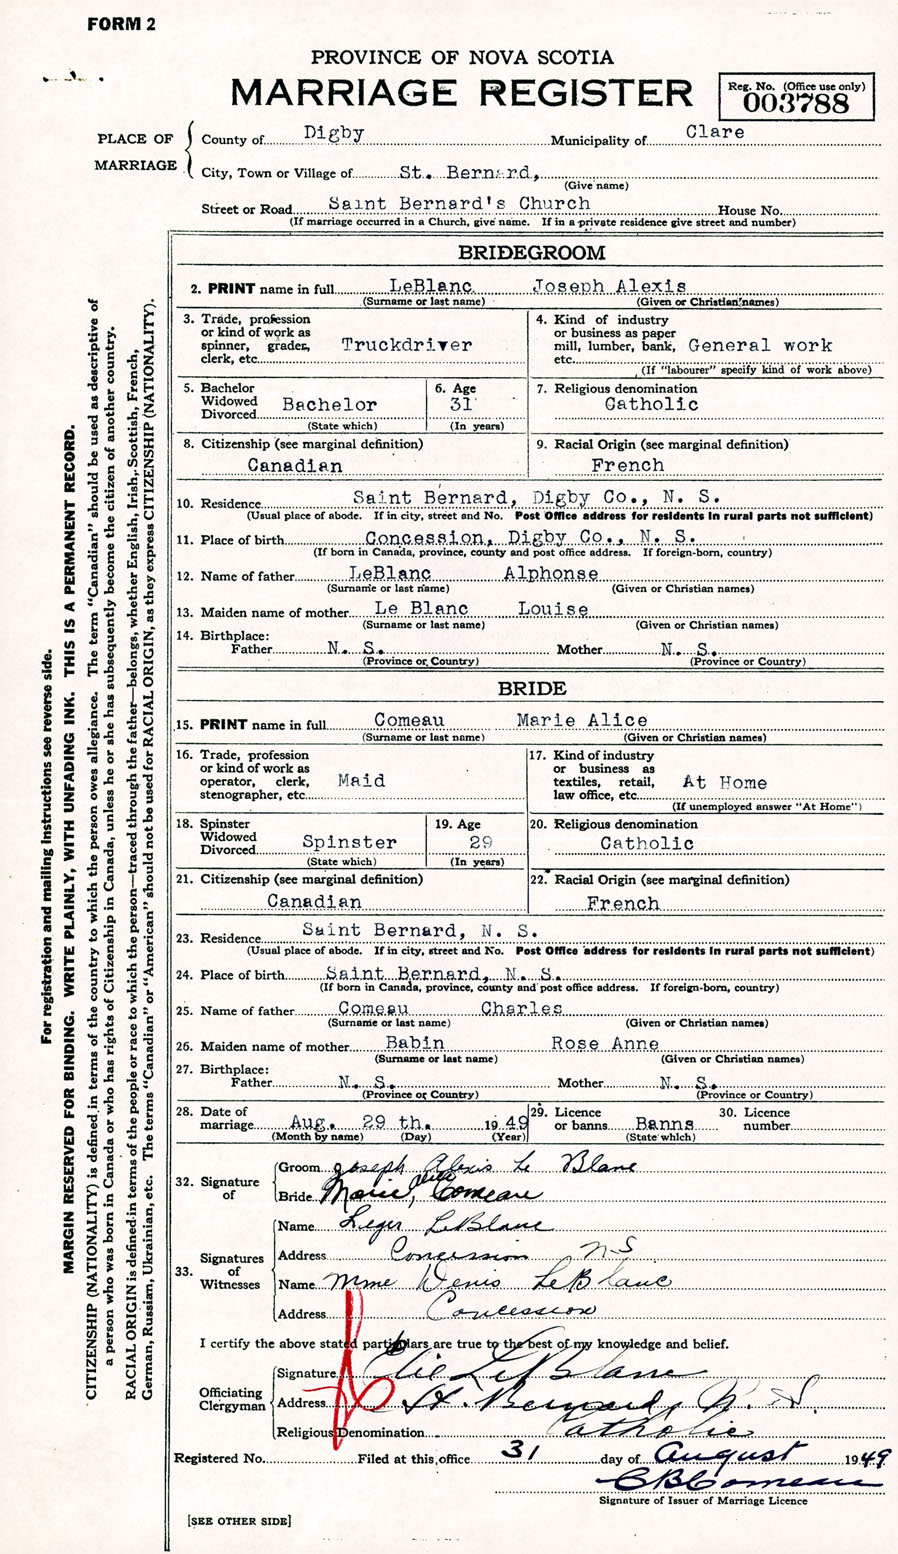 FORM 2
PROVINCE OF NOVA SCOTIA
MARRIAGE REGISTER
Reg. No. (Office use only)
003788
PLACE OF MARRIAGE
County of Digby Municipality of Clare
City, Town or Village of St. Bernard,
(Give name)
Street or Road Saint Bernard's Church House No.
(If marriage occurred in a Church, give name. If in a private residence give street and number)
BRIDEGROOM
2. PRINT name in full LeBlanc Joseph Alexis
(Surname or last name) (Given or Christian names)
3. Trade, profession or kind of work as spinner, grader, clerk, etc. Truckdriver
4. Kind of industry or business as paper mill, lumber, bank, etc. General work
(If "labourer" specify kind of work above)
5. Bachelor Widowed Divorced Bachelor
(State which)
6. Age 31
(In years)
7. Religious denomination
Catholic
8. Citizenship (see marginal definition)
Canadian
9. Racial Origin (see marginal definition)
French
10. Residence Saint Bernard, Digby Co., N. S.
(Usual place of abode. If in city, street and No. Post Office address for residents in rural parts not sufficient)
11. Place of birth Concession, Digby Co., N. S.
(If born in Canada, province, county and post office address. If foreign-born, country)
12. Name of father LeBlanc Alphonse
(Surname or last name) (Given or Christian names)
13. Maiden name of mother Le Blanc Louise
(Surname or last name) (Given or Christian names)
14. Birthplace:
Father N. S. Mother N. S.
(Province or Country) (Province or Country)
BRIDE
15. PRINT name in full Comeau Marie Alice
(Surname or last name) (Given or Christian names)
16. Trade, profession or kind of work as operator, clerk, stenographer, etc. Maid
17. Kind of industry or business as textiles, retail, law office, etc. At Home
(If unemployed answer "At Home")
18. Spinster Widowed Divorced Spinster
(State which)
19. Age 29
(In years)
20. Religious denomination
Catholic
21. Citizenship (see marginal definition)
Canadian
22. Racial Origin (see marginal definition)
French
23. Residence Saint Bernard, N. S.
(Usual place of abode. If in city, street and No. Post Office address for residents in rural parts not sufficient)
24. Place of birth Saint Bernard, N. S.
(If born in Canada, province, county and post office address. If foreign-born, country)
25. Name of father Comeau Charles
(Surname or last name) (Given or Christian names)
26. Maiden name of mother Babin Rose Anne
(Surname or last name) (Given or Christian names)
27. Birthplace:
Father N. S. Mother N. S.
(Province or Country) (Province or Country)
28. Date of marriage Aug. 29 th. 1949
(Month by name) (Day) (Year)
29. Licence or banns Banns
(State which)
30. Licence number
32. Signature of
Groom Joseph Alexis Le Blanc
Bride Marie Alice Comeau
33. Signatures of Witnesses
Name Leger LeBlanc
Address Concession N S
Name Mme Denis LeBlanc
Address Concession
I certify the above stated particulars are true to the best of my knowledge and belief.
Officiating Clergyman
Signature Elie LeBlanc
Address St. Bernard, N. S.
Religious Denomination Catholic
Registered No. Filed at this office 31 day of August 1949
C B Comeau
Signature of Issuer of Marriage Licence
[SEE OTHER SIDE]
For registration and mailing instructions see reverse side.
MARGIN RESERVED FOR BINDING. WRITE PLAINLY, WITH UNFADING INK. THIS IS A PERMANENT RECORD.
CITIZENSHIP (NATIONALITY) is defined in terms of the country to which the person owes allegiance. The term "Canadian" should be used as descriptive of
a person who was born in Canada or who has rights of Citizenship in Canada, unless he or she has subsequently become the citizen of another country.
RACIAL ORIGIN is defined in terms of the people or race to which the person—traced through the father—belongs, whether English, Irish, Scottish, French,
German, Russian, Ukrainian, etc. The terms "Canadian" or "American" should not be used for RACIAL ORIGIN, as they express CITIZENSHIP (NATIONALITY).